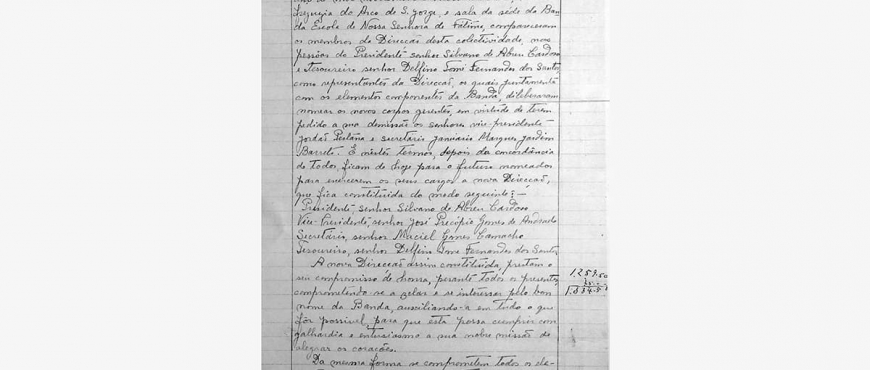 freguesia do Arco de S. Jorge e sala da séde da Ban
da Escola de Nossa Senhora de Fátima, compareceram
os membros da Direcção desta colectividade, nas
pessôas do Presidente senhor Silvano de Abreu Cardoso
e Tesoureiro senhor Delfino Tomé Fernandes dos Santos,
como representantes da Direcção, os quais juntamente
com os elementos componentes da Banda, deliberaram
nomear os novos corpos gerentes, em virtude de terem
pedido a sua demissão os senhores vice-presidente
Jordão Pestana e secretario Januario Marques Jardim
Barreto. E nestes termos, depois da concordância
de todos, ficam de hoje para o futuro nomeados
para exercerem os seus cargos a nova Direcção,
que fica constituída do modo seguinte: —
Presidente, senhor Silvano de Abreu Cardoso
Vice-Presidente, senhor José Precópio Gomes de Andrade
Secretário, senhor Maciel Gomes Camacho
Tesoureiro, senhor Delfim Tomé Fernandes dos Santos
A nova Direcção assim constituída, prestam o
seu compromisso de honra, perante todos os presentes
comprometendo-se a zelar e se interessar pelo bom
nome da Banda, auxiliando-a em tudo o que
fôr possivel, para que esta possa cumprir com
galhardia e entusiasmo a sua nobre missão de
alegrar os corações.
Da mesma forma se comprometem todos os ele-